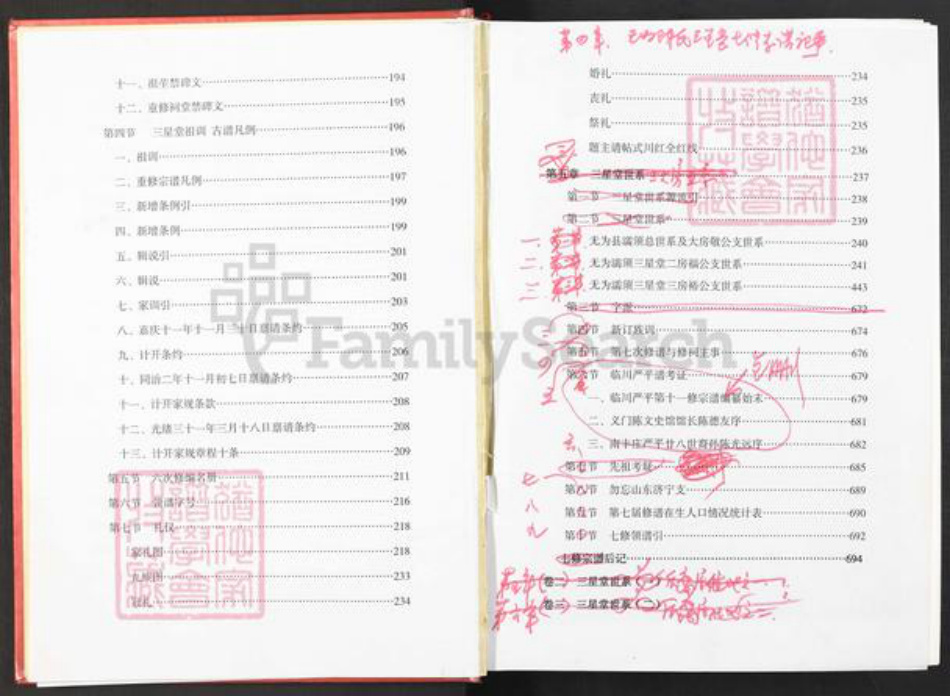 十一、
194
十二、重修祠堂禁碑文 195
第四节 三星堂祖训 古谱凡例 196
一、祖训 196
二、重修宗谱凡例 197
三、新增条例引 199
四、新增条例 199
五、辑说引 201
六、辑说 201
七、家训引 203
八、嘉庆十一年十一月三十日禀请条约 205
九、计开条约 206
十、同治二年十一月初七日禀请条约 207
十一、计开家规条款 208
十二、光绪三十一年三月十八日禀请条约 208
十三、计开家规章程十条 209
第五节 六次修编名册 211
第六节 领谱字号 216
第七节 礼仪 218
家礼图 218
九服图 233
冠礼 234
FamilySearch
第四章
婚礼 234
丧礼 235
祭礼 235
题主请帖式川红全红线 236
第五章 三星堂世系 237
第一节 三星堂世系源流引 238
第二节 三星堂世系 239
一、无为县濡须总世系及大房敬公支世系 240
二、无为濡须三星堂二房福公支世系 241
三、无为濡须三星堂三房裕公支世系 443
第三节 字派 672
第四节 新订族训 674
第五节 第七次修谱与修祠主事 676
第六节 临川严平谱考证 679
一、临川严平第十一修宗谱编纂始末 679
二、义门陈文史馆馆长陈德友序 681
三、南丰庄严平廿八世裔孙陈光远序 682
六
第七节 先祖考证 685
七
第八节 勿忘山东济宁支 689
八
第九节 第七届修谱在生人口情况统计表 690
九
第十节 七修领谱引 692
七修宗谱后记 694
卷二 三星堂世系(一)
卷三 三星堂世系(二)